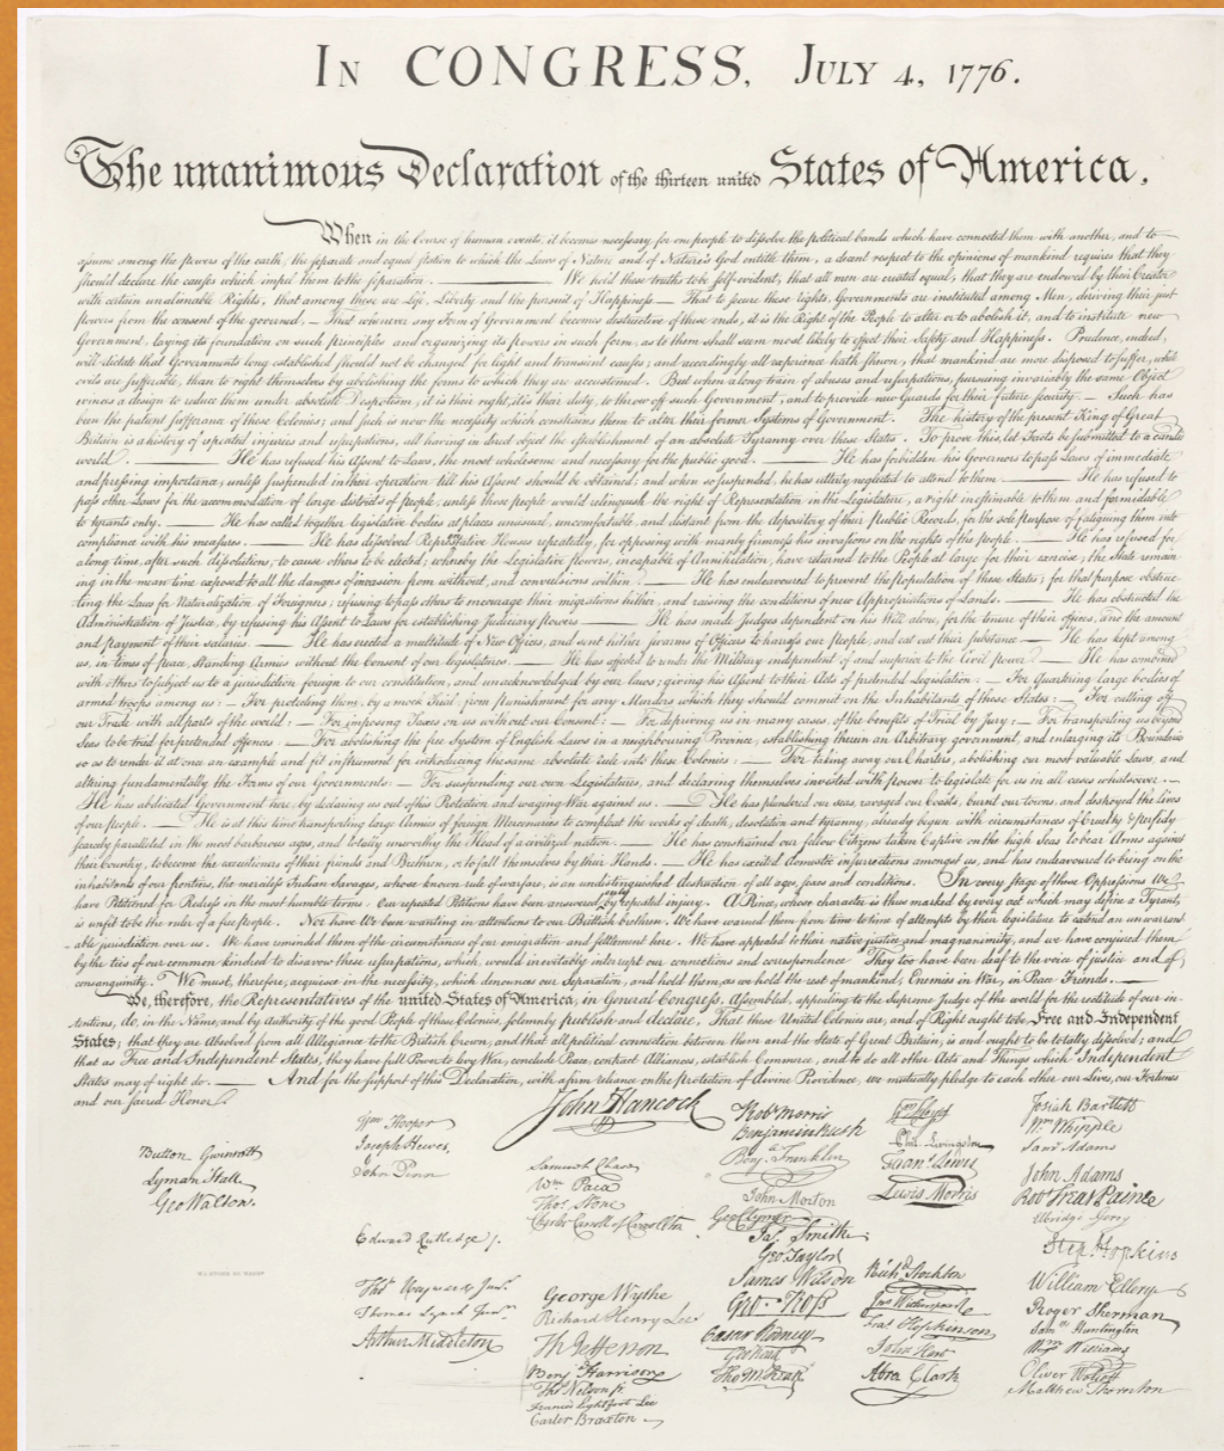 IN CONGRESS, JULY 4, 1776.
The unanimous Declaration of the thirteen united States of America,
When in the Course of human events, it becomes necessary for one people to dissolve the political bands which have connected them with another, and to
assume among the powers of the earth, the separate and equal station to which the Laws of Nature and of Nature's God entitle them, a decent respect to the opinions of mankind requires that they
should declare the causes which impel them to the separation. — We hold these truths to be self-evident, that all men are created equal, that they are endowed by their Creator
with certain unalienable Rights, that among these are Life, Liberty and the pursuit of Happiness. — That to secure these rights, Governments are instituted among Men, deriving their just
powers from the consent of the governed, — That whenever any Form of Government becomes destructive of these ends, it is the Right of the People to alter or to abolish it, and to institute new
Government, laying its foundation on such principles and organizing its powers in such form, as to them shall seem most likely to effect their Safety and Happiness. Prudence, indeed,
will dictate that Governments long established should not be changed for light and transient causes; and accordingly all experience hath shewn, that mankind are more disposed to suffer, while
evils are sufferable, than to right themselves by abolishing the forms to which they are accustomed. But when a long train of abuses and usurpations, pursuing invariably the same Object
evinces a design to reduce them under absolute Despotism, it is their right, it is their duty, to throw off such Government, and to provide new Guards for their future security. — Such has
been the patient sufferance of these Colonies; and such is now the necessity which constrains them to alter their former Systems of Government. The history of the present King of Great
Britain is a history of repeated injuries and usurpations, all having in direct object the establishment of an absolute Tyranny over these States. To prove this, let Facts be submitted to a candid
world. — He has refused his Assent to Laws, the most wholesome and necessary for the public good. — He has forbidden his Governors to pass Laws of immediate
and pressing importance, unless suspended in their operation till his Assent should be obtained; and when so suspended, he has utterly neglected to attend to them. — He has refused to
pass other Laws for the accommodation of large districts of people, unless those people would relinquish the right of Representation in the Legislature, a right inestimable to them and formidable
to tyrants only. — He has called together legislative bodies at places unusual, uncomfortable, and distant from the depository of their Public Records, for the sole purpose of fatiguing them into
compliance with his measures. — He has dissolved Representative Houses repeatedly, for opposing with manly firmness his invasions on the rights of the people. — He has refused for
a long time, after such dissolutions, to cause others to be elected; whereby the Legislative powers, incapable of Annihilation, have returned to the People at large for their exercise; the State remain-
ing in the mean time exposed to all the dangers of invasion from without, and convulsions within. — He has endeavoured to prevent the Population of these States; for that purpose obstruc-
ting the Laws for Naturalization of Foreigners; refusing to pass others to encourage their migrations hither, and raising the conditions of new Appropriations of Lands. — He has obstructed the
Administration of Justice, by refusing his Assent to Laws for establishing Judiciary powers. — He has made Judges dependent on his Will alone, for the tenure of their offices, and the amount
and payment of their salaries. — He has erected a multitude of New Offices, and sent hither swarms of Officers to harrass our people, and eat out their substance. — He has kept among
us, in times of peace, Standing Armies without the Consent of our legislatures. — He has affected to render the Military independent of and superior to the Civil power. — He has combined
with others to subject us to a jurisdiction foreign to our constitution, and unacknowledged by our laws; giving his Assent to their Acts of pretended Legislation: — For Quartering large bodies of
armed troops among us: — For protecting them, by a mock Trial, from punishment for any Murders which they should commit on the Inhabitants of these States: — For cutting off
our Trade with all parts of the world: — For imposing Taxes on us without our Consent: — For depriving us in many cases, of the benefits of Trial by Jury: — For transporting us beyond
Seas to be tried for pretended offences: — For abolishing the free System of English Laws in a neighbouring Province, establishing therein an Arbitrary government, and enlarging its Boundaries
so as to render it at once an example and fit instrument for introducing the same absolute rule into these Colonies: — For taking away our Charters, abolishing our most valuable Laws, and
altering fundamentally the Forms of our Governments: — For suspending our own Legislatures, and declaring themselves invested with power to legislate for us in all cases whatsoever. —
He has abdicated Government here, by declaring us out of his Protection and waging War against us. — He has plundered our seas, ravaged our Coasts, burnt our towns, and destroyed the lives
of our people. — He is at this time transporting large Armies of foreign Mercenaries to compleat the works of death, desolation and tyranny, already begun with circumstances of Cruelty & perfidy
scarcely paralleled in the most barbarous ages, and totally unworthy the Head of a civilized nation. — He has constrained our fellow Citizens taken Captive on the high Seas to bear Arms against
their Country, to become the executioners of their friends and Brethren, or to fall themselves by their Hands. — He has excited domestic insurrections amongst us, and has endeavoured to bring on the
inhabitants of our frontiers, the merciless Indian Savages, whose known rule of warfare, is an undistinguished destruction of all ages, sexes and conditions. In every stage of these Oppressions We
have Petitioned for Redress in the most humble terms: Our repeated Petitions have been answered only by repeated injury. A Prince, whose character is thus marked by every act which may define a Tyrant,
is unfit to be the ruler of a free people. Nor have We been wanting in attentions to our Brittish brethren. We have warned them from time to time of attempts by their legislature to extend an unwarrant-
able jurisdiction over us. We have reminded them of the circumstances of our emigration and settlement here. We have appealed to their native justice and magnanimity, and we have conjured them
by the ties of our common kindred to disavow these usurpations, which, would inevitably interrupt our connections and correspondence They too have been deaf to the voice of justice and of
consanguinity. We must, therefore, acquiesce in the necessity, which denounces our Separation, and hold them, as we hold the rest of mankind, Enemies in War, in Peace Friends. —
We, therefore, the Representatives of the united States of America, in General Congress, Assembled, appealing to the Supreme Judge of the world for the rectitude of our in-
tentions, do, in the Name, and by Authority of the good People of these Colonies, solemnly publish and declare, That these United Colonies are, and of Right ought to be Free and Independent
States; that they are Absolved from all Allegiance to the British Crown, and that all political connection between them and the State of Great Britain, is and ought to be totally dissolved; and
that as Free and Independent States, they have full Power to levy War, conclude Peace, contract Alliances, establish Commerce, and to do all other Acts and Things which Independent
States may of right do. — And for the support of this Declaration, with a firm reliance on the protection of divine Providence, we mutually pledge to each other our Lives, our Fortunes
and our sacred Honor.
Button Gwinnett
Lyman Hall
Geo Walton.
Wm Hooper
Joseph Hewes,
John Penn
Edward Rutledge /.
Thos Heyward Junr.
Thomas Lynch Junr.
Arthur Middleton
John Hancock
Samuel Chase
Wm Paca
Thos Stone
Charles Carroll of Carrollton
George Wythe
Richard Henry Lee
Th Jefferson
Benj Harrison
Thos Nelson jr.
Francis Lightfoot Lee
Carter Braxton
Robt Morris
Benjamin Rush
Benj. Franklin
John Morton
Geo Clymer
Jas. Smith
Geo Taylor
James Wilson
Geo. Ross
Caesar Rodney
Geo Read
Tho M:Kean
Wm Floyd
Phil. Livingston
Frans. Lewis
Lewis Morris
Richd Stockton
Jno Witherspoon
Fras Hopkinson
John Hart
Abra Clark
Josiah Bartlett
Wm Whipple
Saml Adams
John Adams
Robt Treat Paine
Elbridge Gerry
Step Hopkins
William Ellery
Roger Sherman
Saml Huntington
Wm Williams
Oliver Wolcott
Matthew Thornton